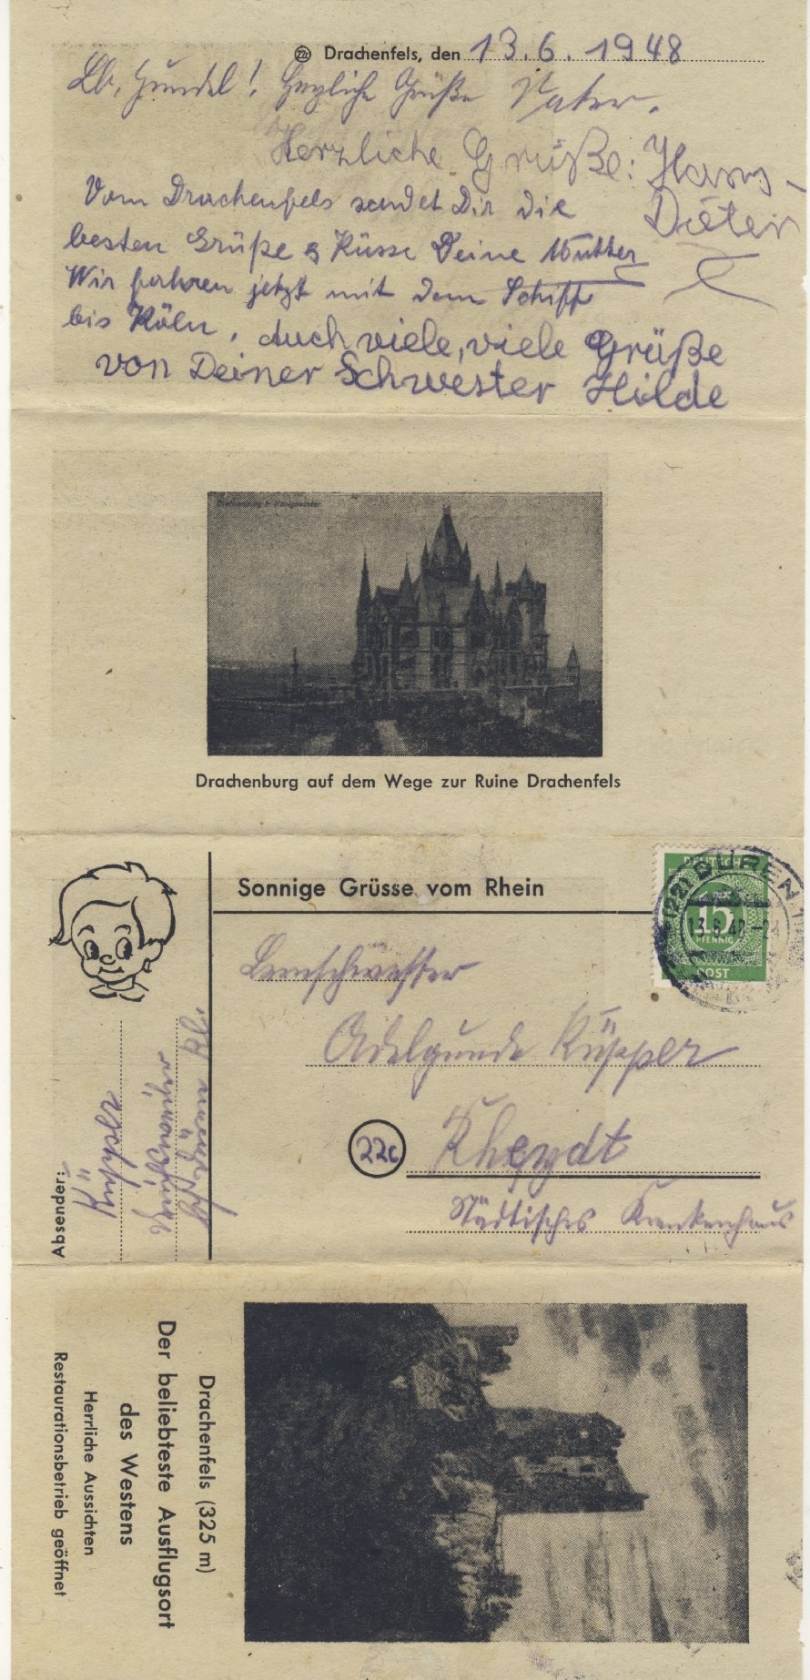 22c Drachenfels, den 13.6.1948
Lb. Gundel! Herzliche Grüße Vater.
Herzliche Grüße: Hans-
Dieter
Vom Drachenfels sendet Dir die
besten Grüße & Küsse Deine Mutter
Wir fahren jetzt mit dem Schiff
bis Köln. Auch viele, viele Grüße
von Deiner Schwester Hilde
Drachenburg auf dem Wege zur Ruine Drachenfels
Sonnige Grüsse vom Rhein
DEUTSCHE
15
PFENNIG
POST
(22) DÜREN
13.6.48
Lernschwester
Adelgunde Küpper
22c Rheydt
Städtisches Krankenhaus
Absender:
Küpper
Drachenfels (325 m)
Der beliebteste Ausflugsort
des Westens
Herrliche Aussichten
Restaurationsbetrieb geöffnet